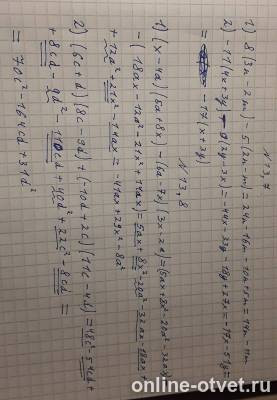 N 13,7
1) 8(3n - 2m) - 5(2n - m) = 24n - 16m - 10n + 5m = 14n - 11m
2) -11(4x+3y) - 9(2y - 3x) = -44x - 33y - 18y + 27x = -17x - 51y =
= -17(x+3y)
N 13,8
1) (x - 4a)(5a + 8x) - (6a - 7x)(3x - 2a) = (5ax + 8x² - 20a² - 32ax)
- (18ax - 12a² - 21x² + 14ax) = 5ax + 8x² - 20a² - 32ax - 18ax +
+ 12a² + 21x² - 14ax = -41ax + 29x² - 8a²
2) (6c + d)(8c - 9d) + (-10d + 2c)(11c - 4d) = 48c² - 54cd +
+ 8cd - 9d² - 110cd + 40d² + 22c² - 8cd =
= 70c² - 164cd + 31d²
online-otvet.ru